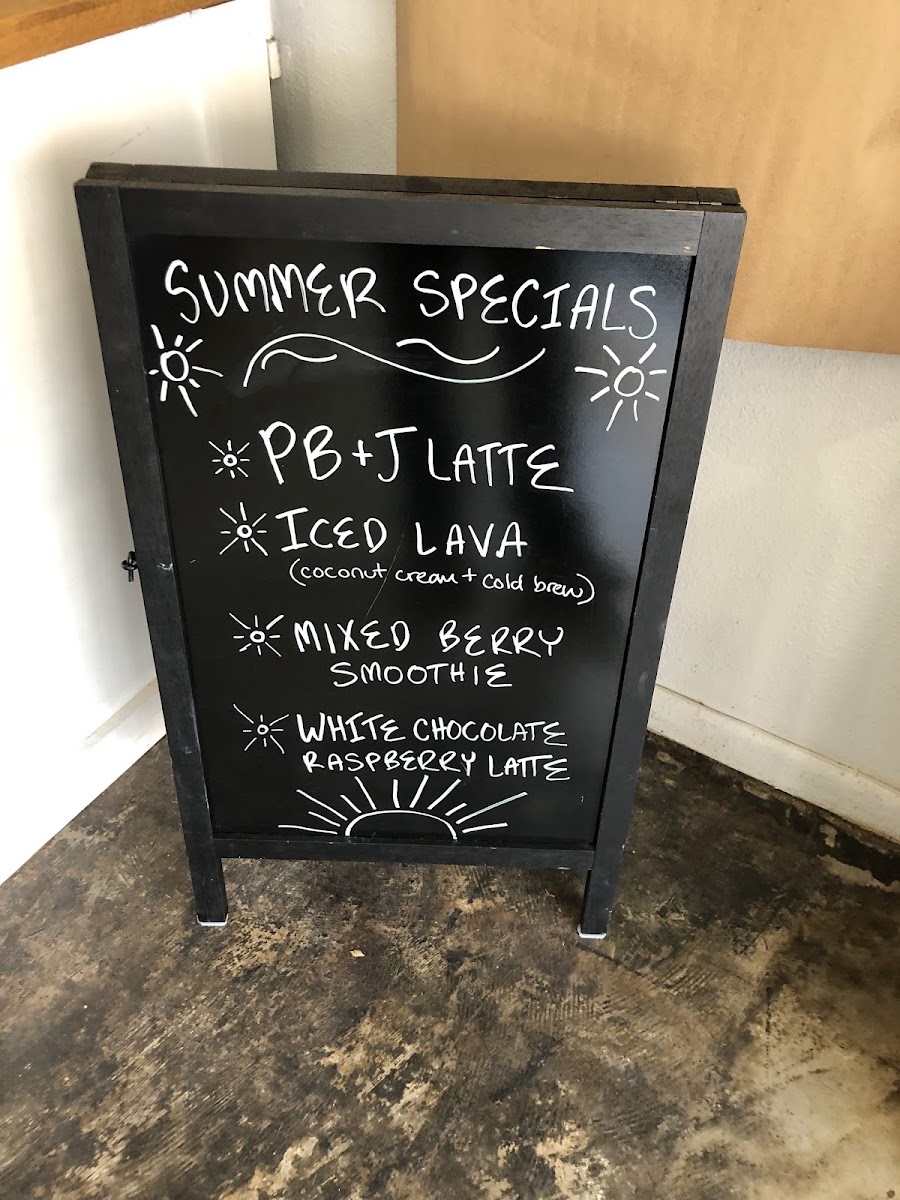 SUMMER SPECIALS
PB+J LATTE
ICED LAVA
(coconut cream + cold brew)
MIXED BERRY
SMOOTHIE
WHITE CHOCOLATE
RASPBERRY LATTE